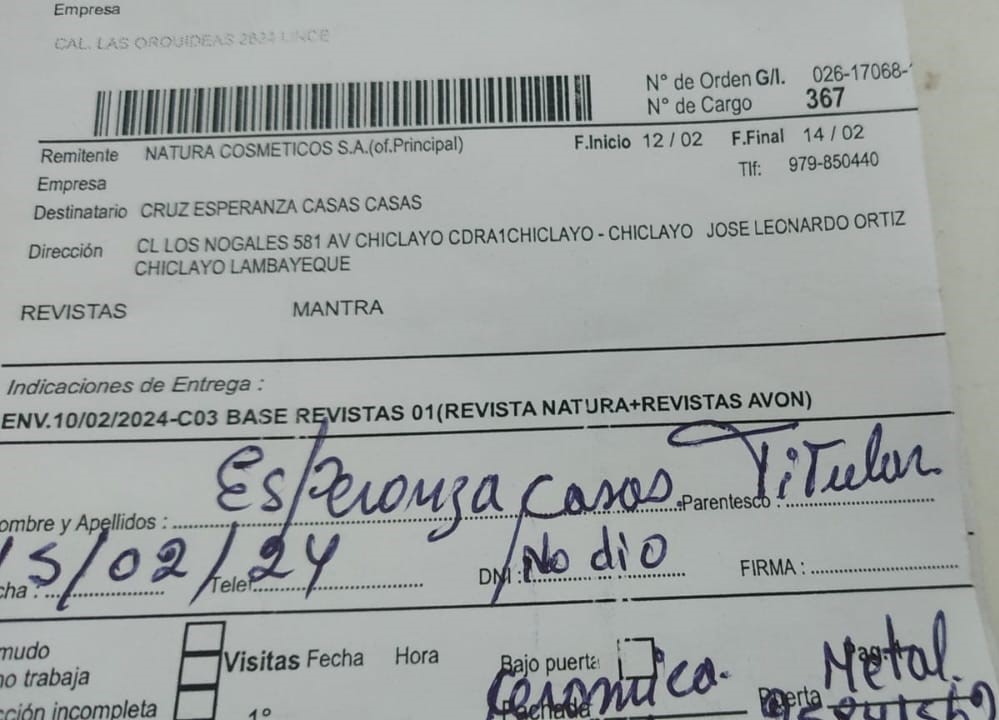 Empresa
CAL. LAS ORQUIDEAS 2634 LINCE
N° de Orden G/I. 026-17068-
N° de Cargo 367
Remitente NATURA COSMETICOS S.A.(of.Principal) F.Inicio 12 / 02 F.Final 14 / 02
Empresa Tlf: 979-850440
Destinatario CRUZ ESPERANZA CASAS CASAS
Dirección CL LOS NOGALES 581 AV CHICLAYO CDRA1CHICLAYO - CHICLAYO JOSE LEONARDO ORTIZ
CHICLAYO LAMBAYEQUE
REVISTAS MANTRA
Indicaciones de Entrega :
ENV.10/02/2024-C03 BASE REVISTAS 01(REVISTA NATURA+REVISTAS AVON)
ombre y Apellidos : Esperanza Casas Parentesco : Titular
cha : 15/02/24 Telef. DNI : No dio FIRMA :
mudo Visitas Fecha Hora Bajo puerta Metal.
no trabaja Ceramica. Puerta
cción incompleta 1° Fachada